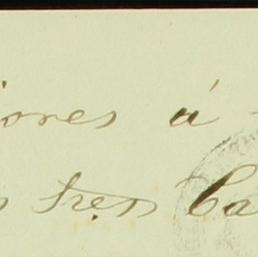 iores á
s tres Ca